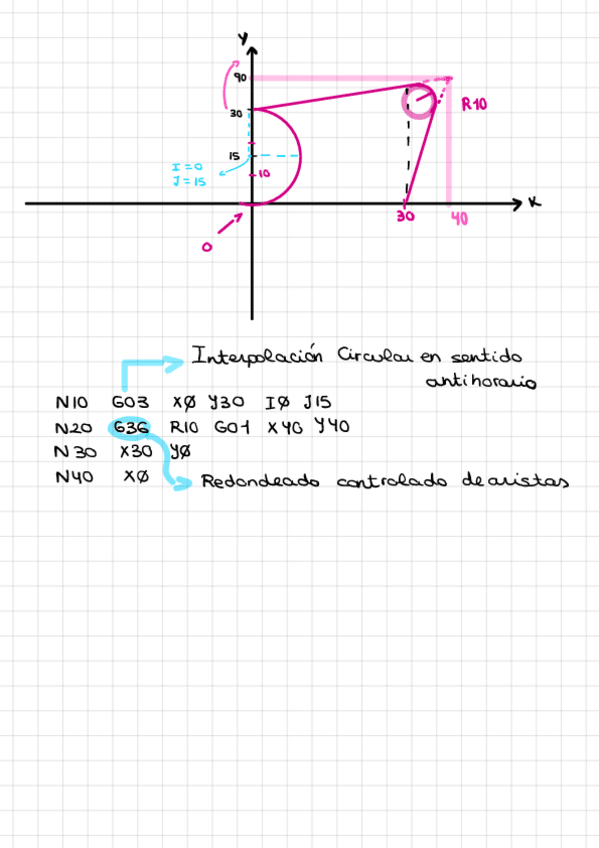 Y
90
30
R10
15
I=0
J=15
10
X
30
40
0
Interpolación Circular en sentido
antihorario
N10 G03 XØ Y30 IØ J15
N20 G36 R10 G01 X40 Y40
N30 X30 YØ
N40 XØ
Redondeado controlado de aristas